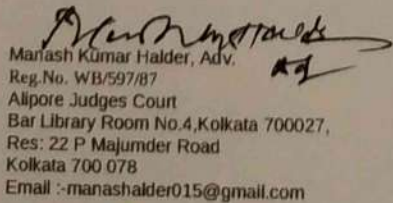 Manash Kumar Halder, Adv.
Reg.No. WB/597/87
Alipore Judges Court
Bar Library Room No.4,Kolkata 700027,
Res: 22 P Majumder Road
Kolkata 700 078
Email :-manashalder015@gmail.com